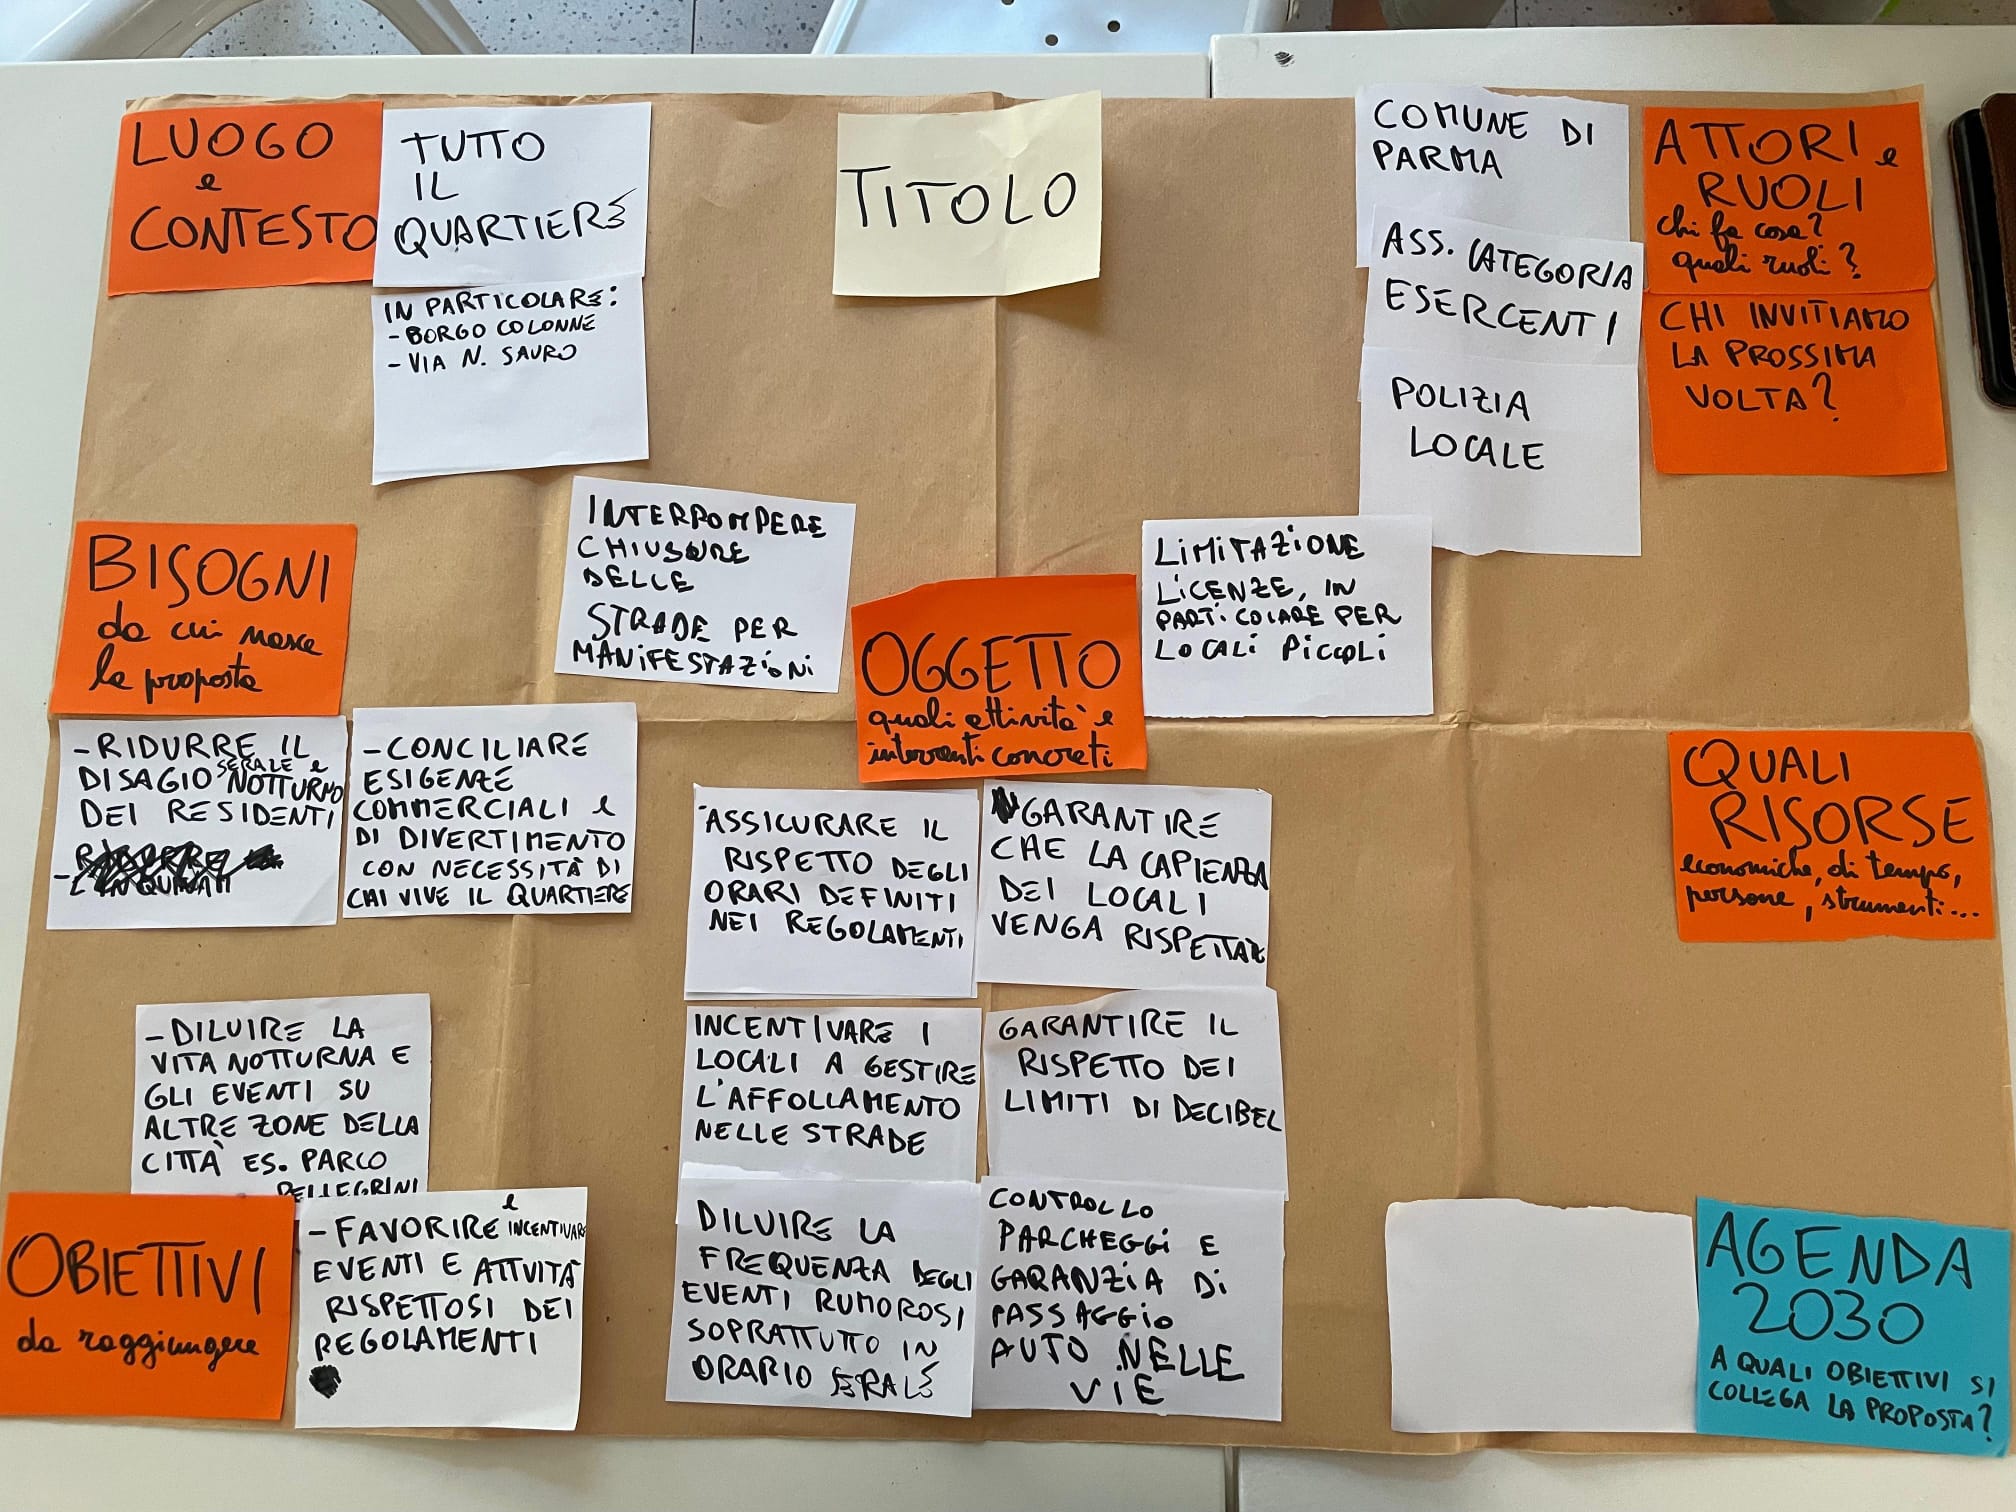 LUOGO
e
CONTESTO
TUTTO
IL
QUARTIERE
IN PARTICOLARE:
- BORGO COLONNE
- VIA N. SAURO
TITOLO
COMUNE DI
PARMA
ASS. CATEGORIA
ESERCENTI
POLIZIA
LOCALE
ATTORI e
RUOLI
chi fa cosa?
quali ruoli?
CHI INVITIAMO
LA PROSSIMA
VOLTA?
BISOGNI
da cui nasce
la proposta
- RIDURRE IL
DISAGIO SERALE e NOTTURNO
DEI RESIDENTI
- CONCILIARE
ESIGENZE
COMMERCIALI e
DI DIVERTIMENTO
CON NECESSITÀ DI
CHI VIVE IL QUARTIERE
INTERROMPERE
CHIUSURE
DELLE
STRADE PER
MANIFESTAZIONI
OGGETTO
quali attività e
interventi concreti
LIMITAZIONE
LICENZE, IN
PARTICOLARE PER
LOCALI PICCOLI
ASSICURARE IL
RISPETTO DEGLI
ORARI DEFINITI
NEI REGOLAMENTI
GARANTIRE
CHE LA CAPIENZA
DEI LOCALI
VENGA RISPETTATA
INCENTIVARE I
LOCALI A GESTIRE
L'AFFOLLAMENTO
NELLE STRADE
GARANTIRE IL
RISPETTO DEI
LIMITI DI DECIBEL
DILUIRE LA
FREQUENZA DEGLI
EVENTI RUMOROSI
SOPRATTUTTO IN
ORARIO SERALE
CONTROLLO
PARCHEGGI E
GARANZIA DI
PASSAGGIO
AUTO NELLE
VIE
QUALI
RISORSE
economiche, di tempo,
persone, strumenti...
- DILUIRE LA
VITA NOTTURNA E
GLI EVENTI SU
ALTRE ZONE DELLA
CITTÀ ES. PARCO
PELLEGRINI
OBIETTIVI
da raggiungere
- FAVORIRE e INCENTIVARE
EVENTI E ATTVITÀ
RISPETTOSI DEI
REGOLAMENTI
AGENDA
2030
A QUALI OBIETTIVI SI
COLLEGA LA PROPOSTA?